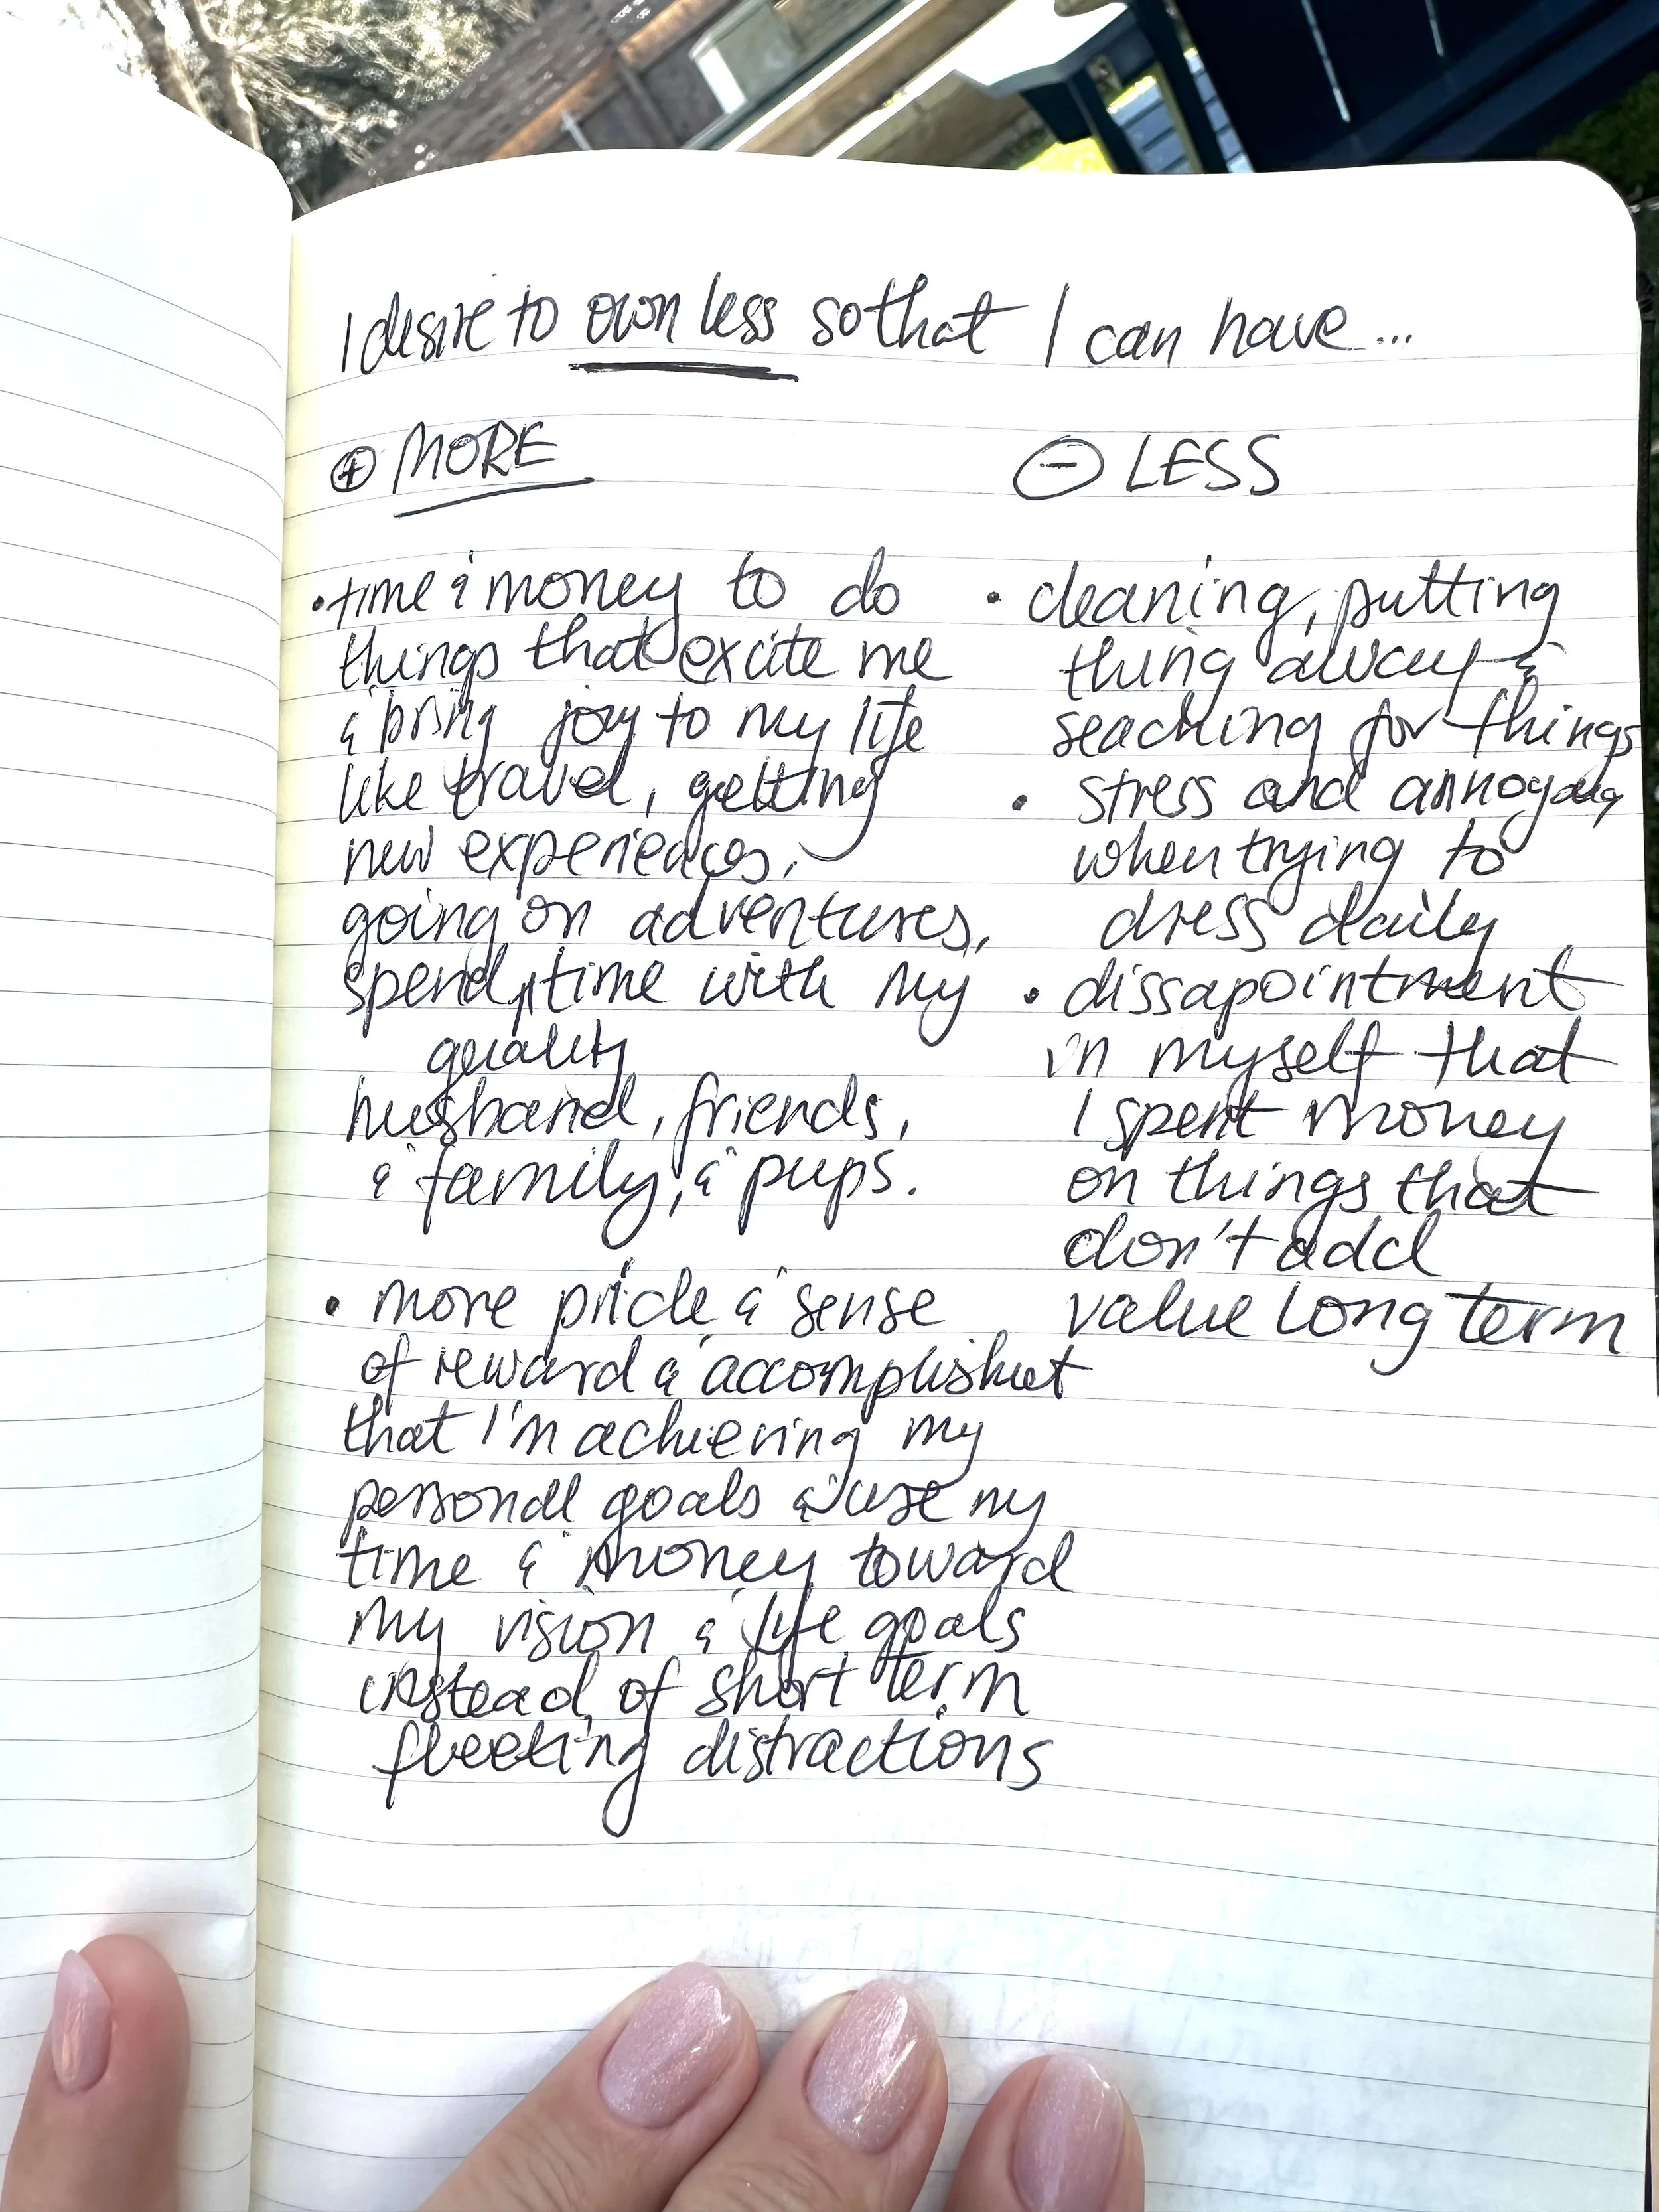 I desire to own less so that I can have...
⊕ MORE
• time & money to do
things that excite me
& bring joy to my life
like travel, getting
new experiences,
going on adventures,
spend quality time with my
husband, friends,
& family, & pups.
• more pride & sense
of reward & accomplishmet
that I'm achieving my
personal goals & use my
time & money toward
my vision & life goals
instead of short term
fleeting distractions
⊖ LESS
• cleaning, putting
thing away &
seaching for things
• stress and
when trying to
dress daily
• dissapointment
in myself that
I spent money
on things that
don't add
value long term